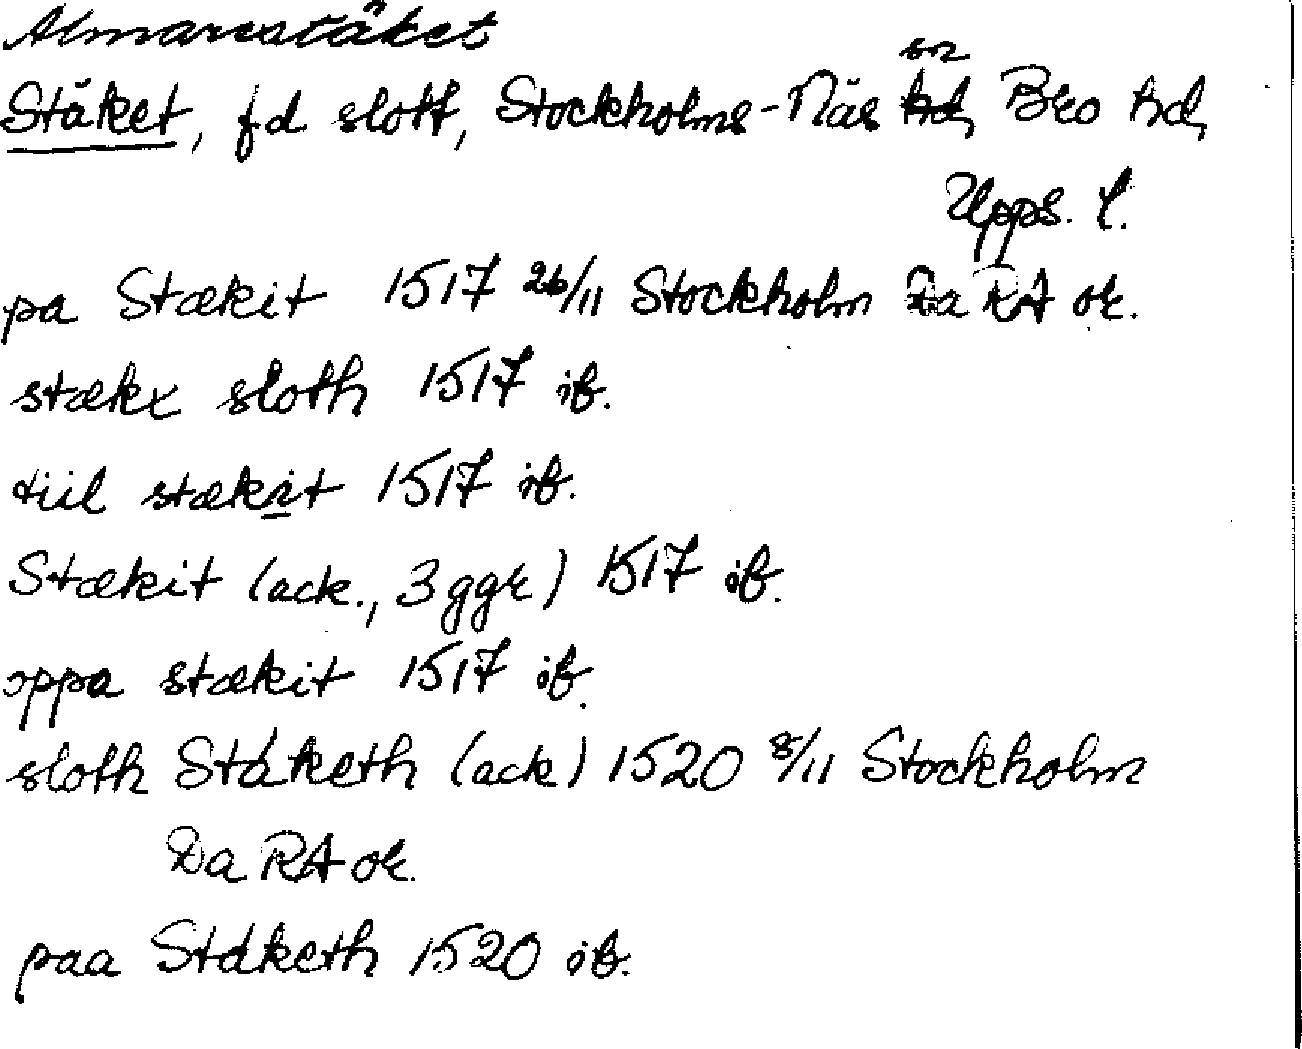 Almarestäket
Stäket, fd slott, Stockholms-Näs sn Bro hd,
Upps. l.
pa Stækit 1517 26/11 Stockholm Da RA or.
stækx sloth 1517 ib.
tiil stækit 1517 ib.
Stækit (ack., 3 ggr) 1517 ib.
oppa stækit 1517 ib.
sloth Stáketh (ack) 1520 8/11 Stockholm
Da RA or.
paa Stáketh 1520 ib.